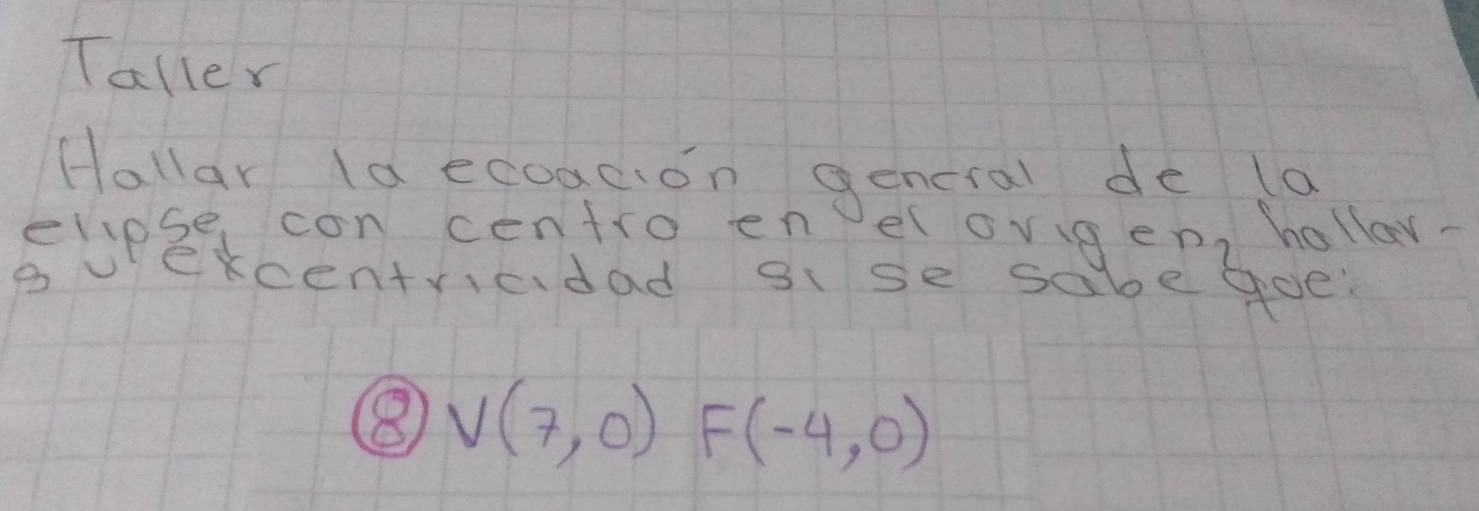 Taller
Hallar la ecuación general de la
elipse, con centro en el origen, hallar-
su excentricidad si se sabe que:
⑧ V(7,0) F(-4,0)